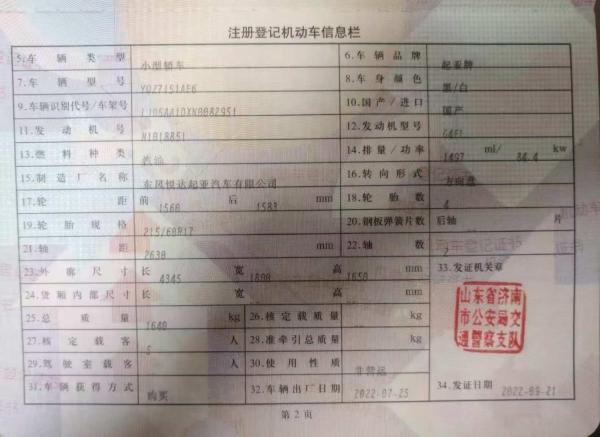 注册登记机动车信息栏
5.车辆类型 小型轿车 6.车辆品牌 起亚牌
7.车辆型号 YQZ7151AE6 8.车身颜色 黑/白
9.车辆识别代号/车架号 10.国产/进口 国产
11.发动机号 12.发动机型号 G4FL
13.燃料种类 汽油 14.排量/功率 1497 ml/ 84.4 kw
15.制造厂名称 东风悦达起亚汽车有限公司 16.转向形式 方向盘
17.轮距 前 1560 后 1583 mm 18.轮胎数 4
19.轮胎规格 215/60R17 20.钢板弹簧片数 后轴 片
21.轴距 2630 mm 22.轴数 2
23.外廓尺寸 长 4345 宽 1800 高 1650 mm 33.发证机关章
24.货厢内部尺寸 长 宽 高 mm
山东省济南
市公安局交
通警察支队
25.总质量 1640 kg 26.核定载质量 kg
27.核定载客 5 人 28.准牵引总质量 kg
29.驾驶室载客 人 30.使用性质 非营运
31.车辆获得方式 购买 32.车辆出厂日期 2022-07-25 34.发证日期 2022-09-21
第2页